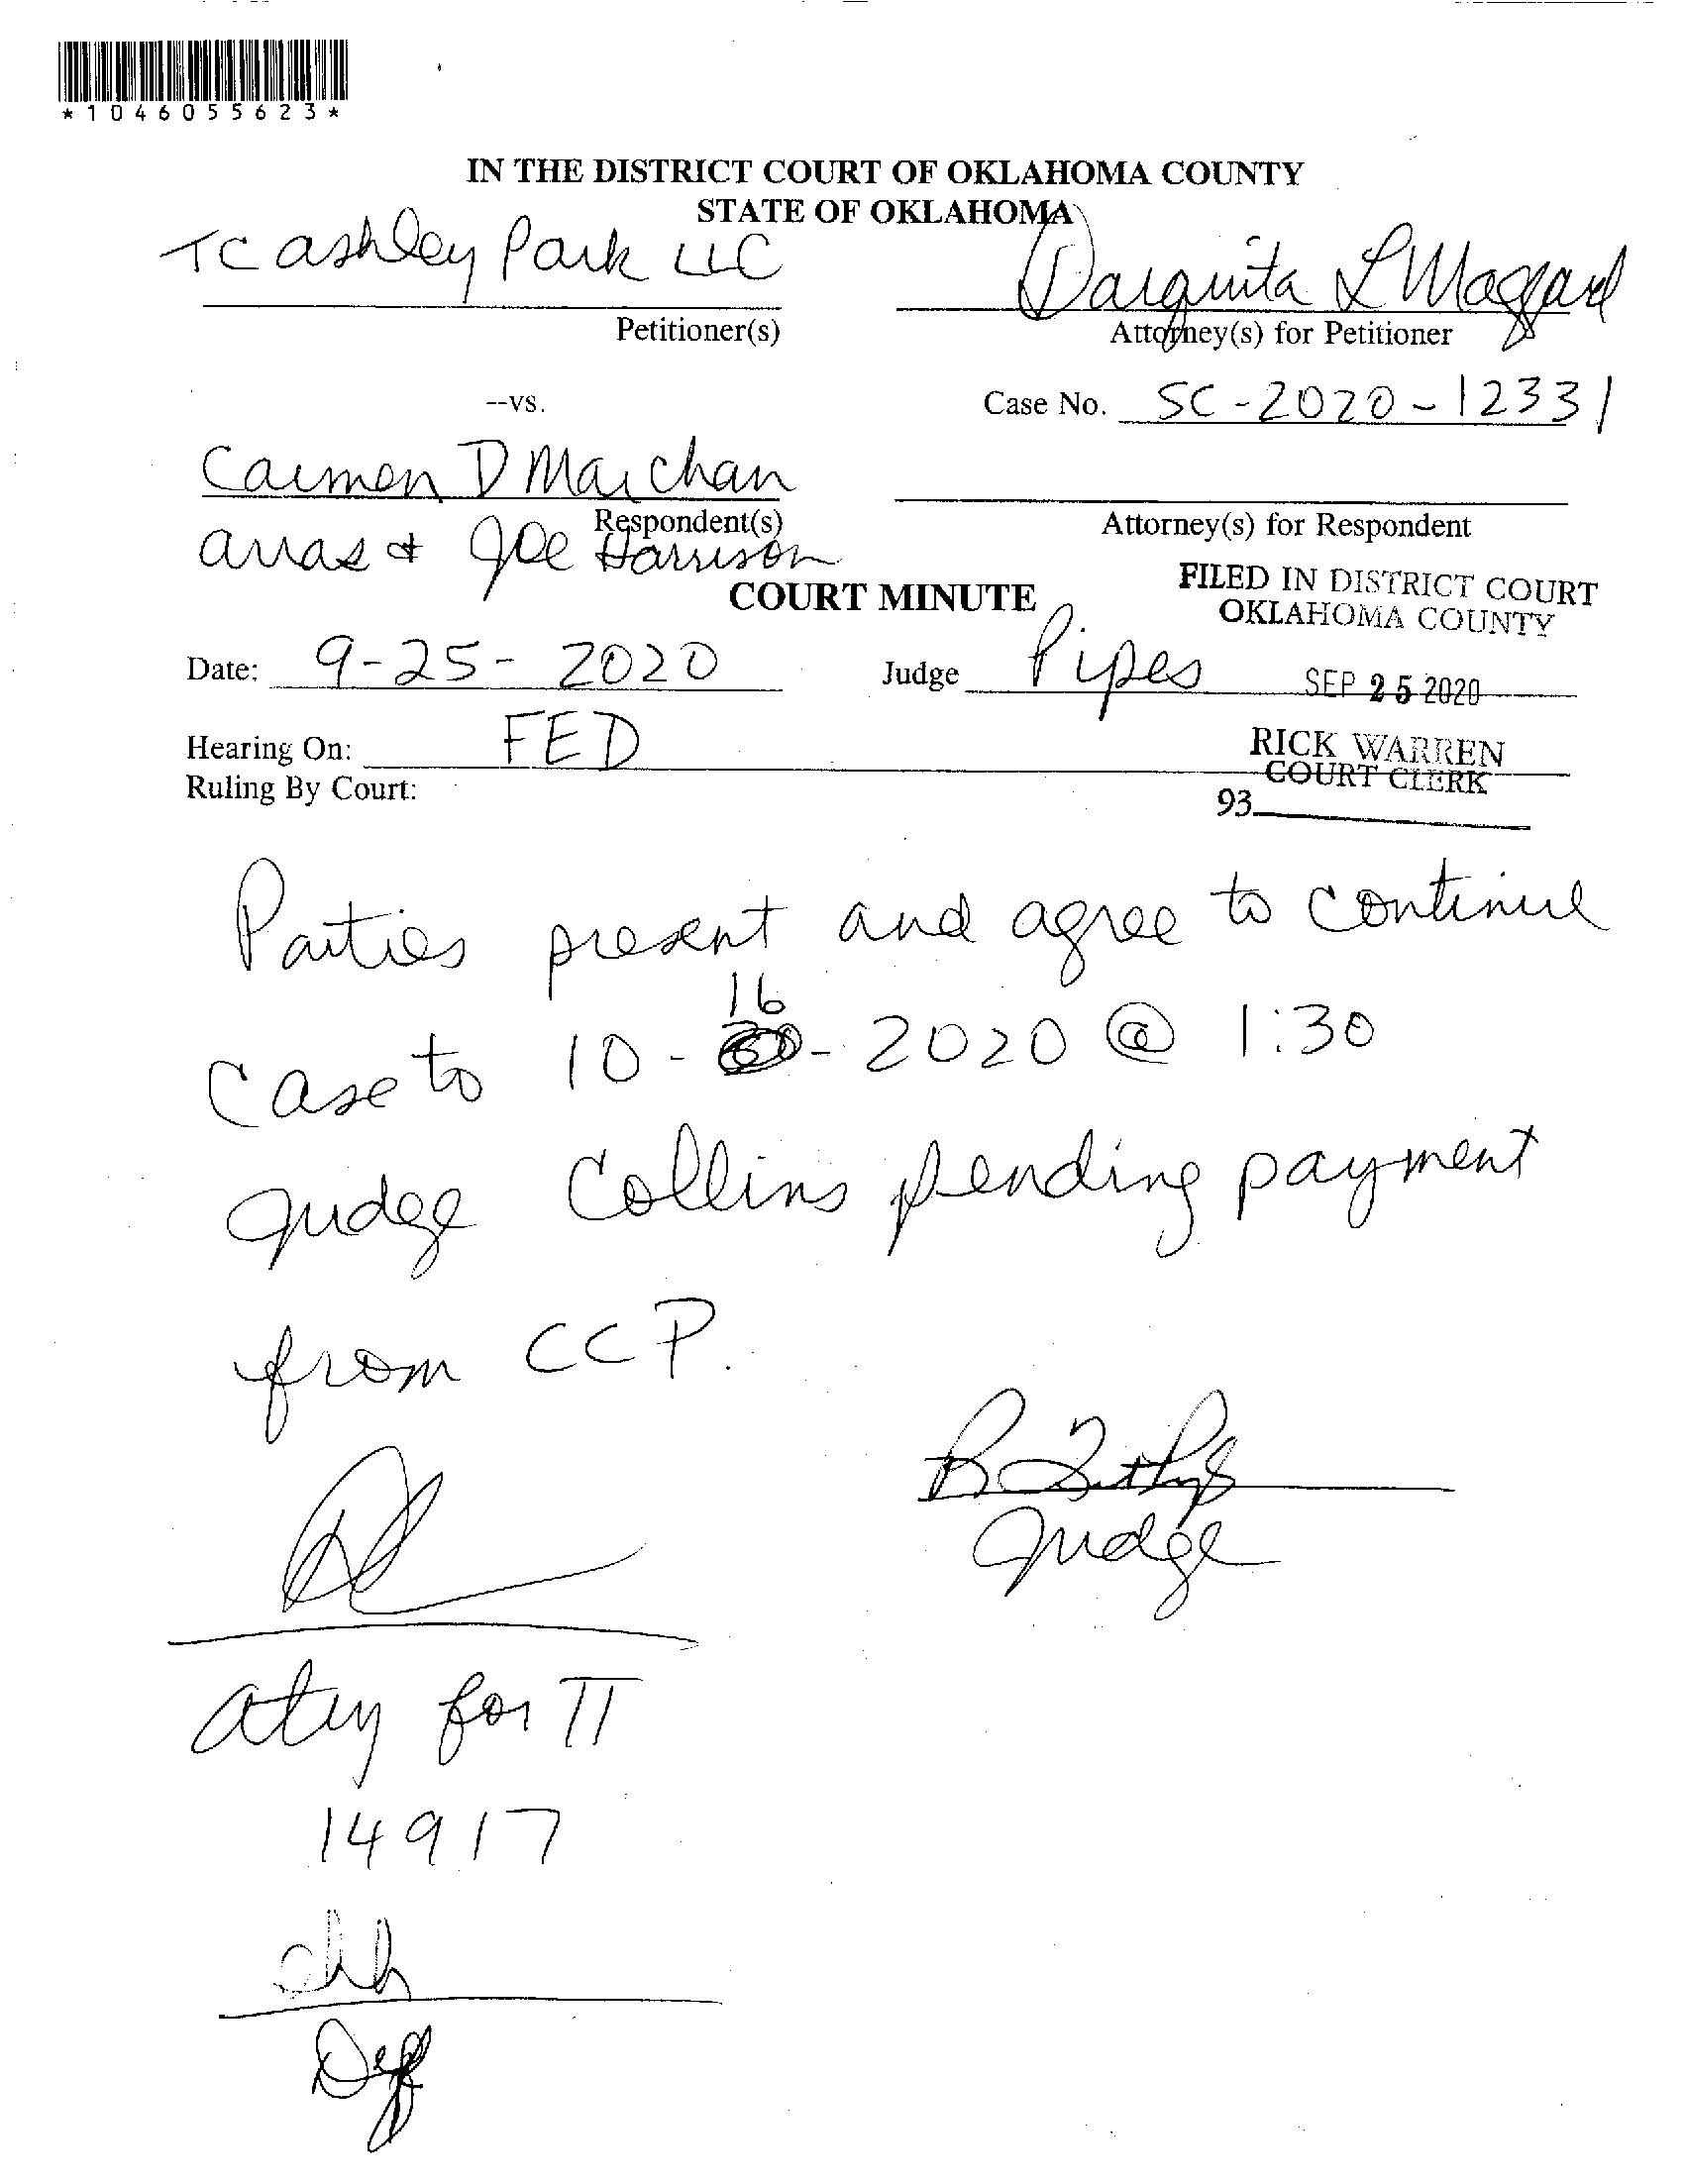 *1046055623*
IN THE DISTRICT COURT OF OKLAHOMA COUNTY
STATE OF OKLAHOMA
TC Ashley Park LLC
Petitioner(s)
Darquita L Maggard
Attorney(s) for Petitioner
--vs.
Case No. SC-2020-12331
Carmen D Marchan
Respondent(s)
Arras & Joe Harrison
Attorney(s) for Respondent
COURT MINUTE
FILED IN DISTRICT COURT
OKLAHOMA COUNTY
Date: 9-25-2020
Judge Pipes
SEP 25 2020
Hearing On: FED
RICK WARREN
COURT CLERK
Ruling By Court:
93
Parties present and agree to continue
16
case to 10- - 2020 @ 1:30
Judge Collins pending payment
from CCP.
Judge
atty for π
14917
Def